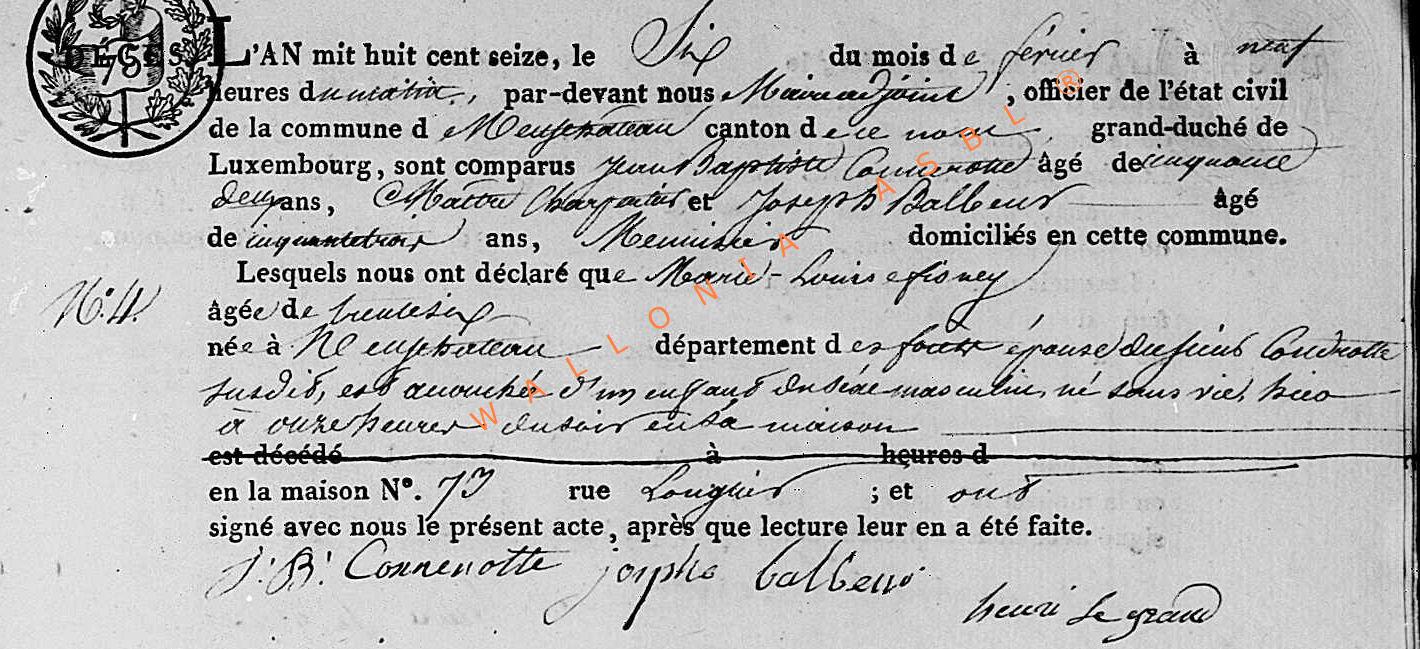 DÉCÈS
75
L'AN mit huit cent seize, le Six du mois de février à neuf
heures du matin, par-devant nous Maire adjoint, officier de l'état civil
de la commune d Neufchateau canton de ce nom, grand-duché de
Luxembourg, sont comparus Jean Baptiste Connerotte âgé de cinquante
deux ans, Maitre Charpentier et Joseph Balbeur âgé
de cinquantetrois ans, Menuisier domiciliés en cette commune.
Lesquels nous ont déclaré que Marie-Louise fisney
N.° 4.
âgée de trentesix
née à Neufchateau département des forêts épouse du sieur Connerotte
susdit, est accouchée d'un enfant du sexe masculin, né sans vie, hier
à onze heures du soir en sa maison
est décédé à heures d
en la maison N°. 73 rue Longlier ; et ont
signé avec nous le présent acte, après que lecture leur en a été faite.
J: B: Connerotte joseph balbeur
henri Le grand
WALLONIA ASBL ®